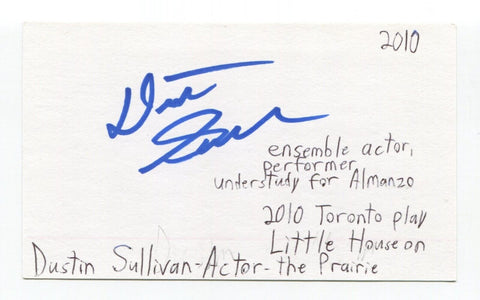 2010
Dustin
Sullivan
ensemble actor,
performer
understudy for Almanzo
2010 Toronto play
Little House on
Dustin Sullivan-Actor-the Prairie